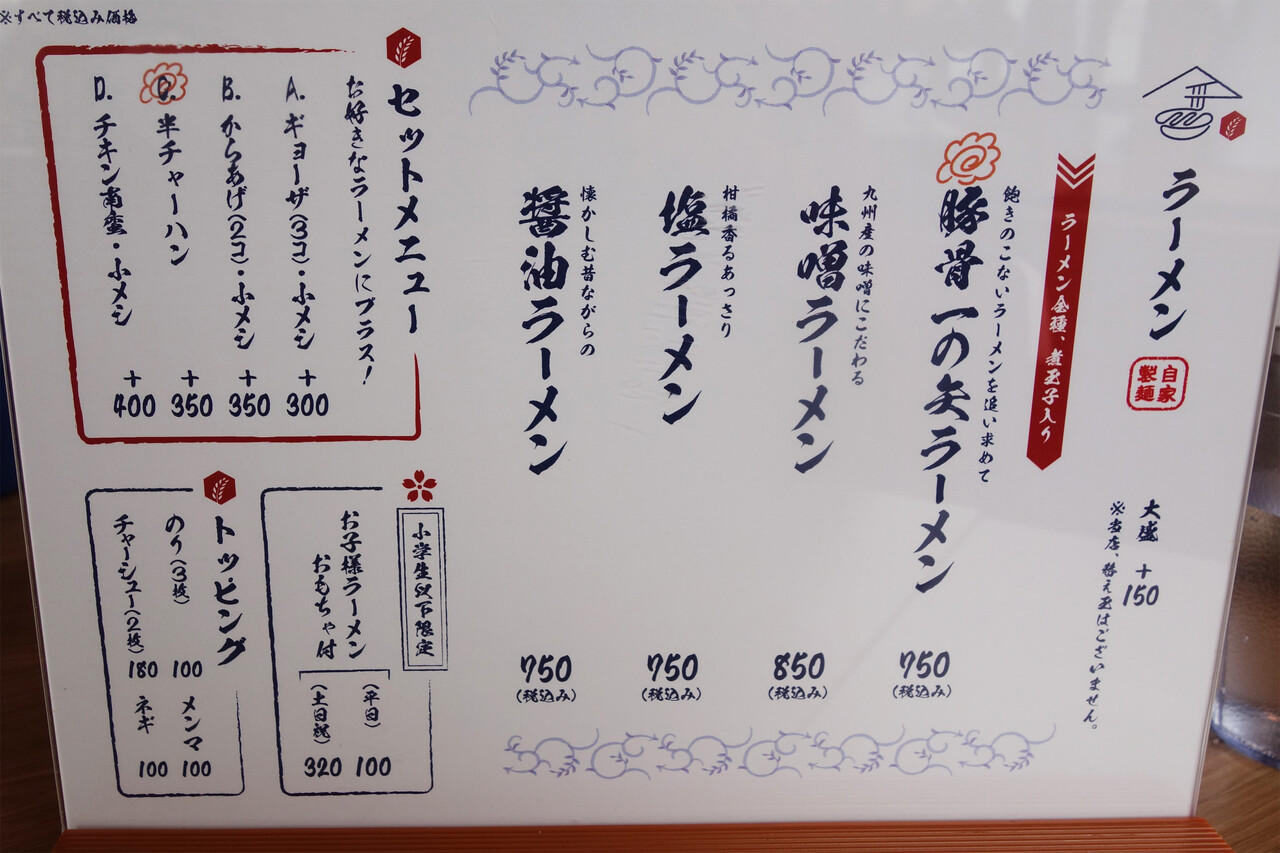 ※すべて税込み価格
ラーメン
自家製麺
大盛 +150
※当店、替え玉はございません。
ラーメン全種、煮玉子入り
飽きのこないラーメンを追い求めて
豚骨一の矢ラーメン
750
(税込み)
九州産の味噌にこだわる
味噌ラーメン
850
(税込み)
柑橘香るあっさり
塩ラーメン
750
(税込み)
懐かしむ昔ながらの
醤油ラーメン
750
(税込み)
セットメニュー
お好きなラーメンにプラス!
A. ギョーザ(3コ)・小メシ +300
B. からあげ(2コ)・小メシ +350
C. 半チャーハン +350
D. チキン南蛮・小メシ +400
小学生以下限定
お子様ラーメン
おもちゃ付
(平日) 100
(土日祝) 320
トッピング
のり(3枚) 100
メンマ 100
チャーシュー(2枚) 180
ネギ 100